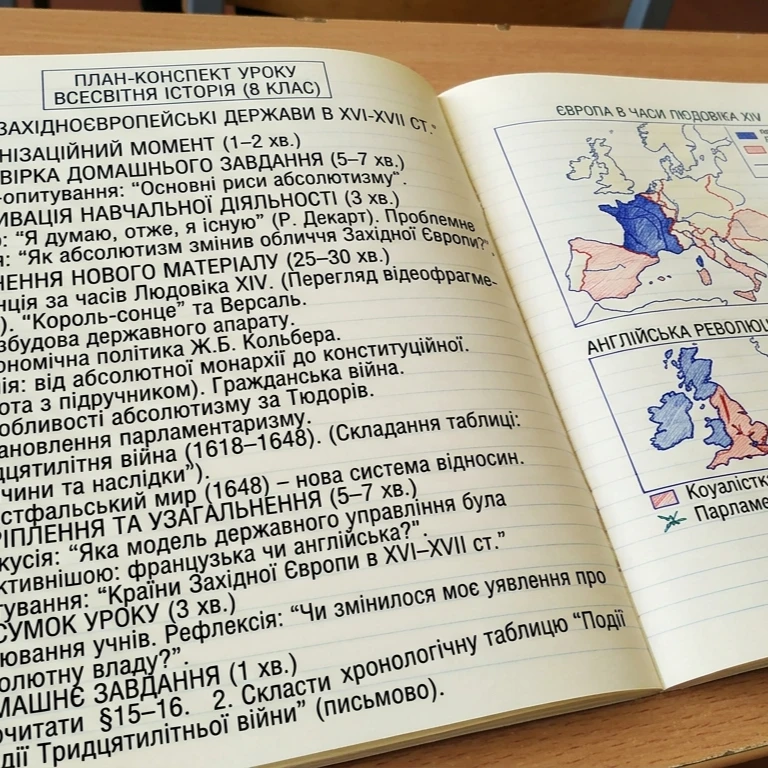 ПЛАН-КОНСПЕКТ УРОКУ
ВСЕСВІТНЯ ІСТОРІЯ (8 КЛАС)
ЗАХІДНОЄВРОПЕЙСЬКІ ДЕРЖАВИ В XVI-XVII СТ."
НІЗАЦІЙНИЙ МОМЕНТ (1–2 хв.)
ВІРКА ДОМАШНЬОГО ЗАВДАННЯ (5–7 хв.)
-опитування: "Основні риси абсолютизму".
ИВАЦІЯ НАВЧАЛЬНОЇ ДІЯЛЬНОСТІ (3 хв.)
: "Я думаю, отже, я існую" (Р. Декарт). Проблемне
я: "Як абсолютизм змінив обличчя Західної Європи?".
ЧЕННЯ НОВОГО МАТЕРІАЛУ (25–30 хв.)
нція за часів Людовіка XIV. (Перегляд відеофрагме-
). "Король-сонце" та Версаль.
збудова державного апарату.
ономічна політика Ж.Б. Кольбера.
ія: від абсолютної монархії до конституційної.
ота з підручником). Гражданська війна.
обливості абсолютизму за Тюдорів.
ановлення парламентаризму.
дцятилітня війна (1618–1648). (Складання таблиці:
чини та наслідки").
стфальський мир (1648) – нова система відносин.
РІПЛЕННЯ ТА УЗАГАЛЬНЕННЯ (5–7 хв.)
кусія: "Яка модель державного управління була
ктивнішою: французька чи англійська?".
тування: "Країни Західної Європи в XVI–XVII ст."
СУМОК УРОКУ (3 хв.)
ювання учнів. Рефлексія: "Чи змінилося моє уявлення про
олютну владу?".
МАШНЄ ЗАВДАННЯ (1 хв.)
очитати §15–16. 2. Скласти хронологічну таблицю "Події
дії Тридцятилітньої війни" (письмово).
ЄВРОПА В ЧАСИ ЛЮДОВІКА XIV
АНГЛІЙСЬКА РЕВОЛЮЦ
Коуалістка
Парламе